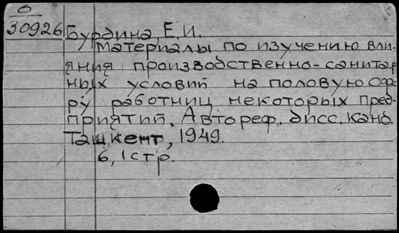 О
30926
Бурдина Е.И.
Материалы по изучению вли-
яния производственно-санитар
ных условий на половую сфе
ру работниц некоторых пред-
приятий. Автореф. дисс. канд.
Ташкент, 1949.
6, 1 стр.